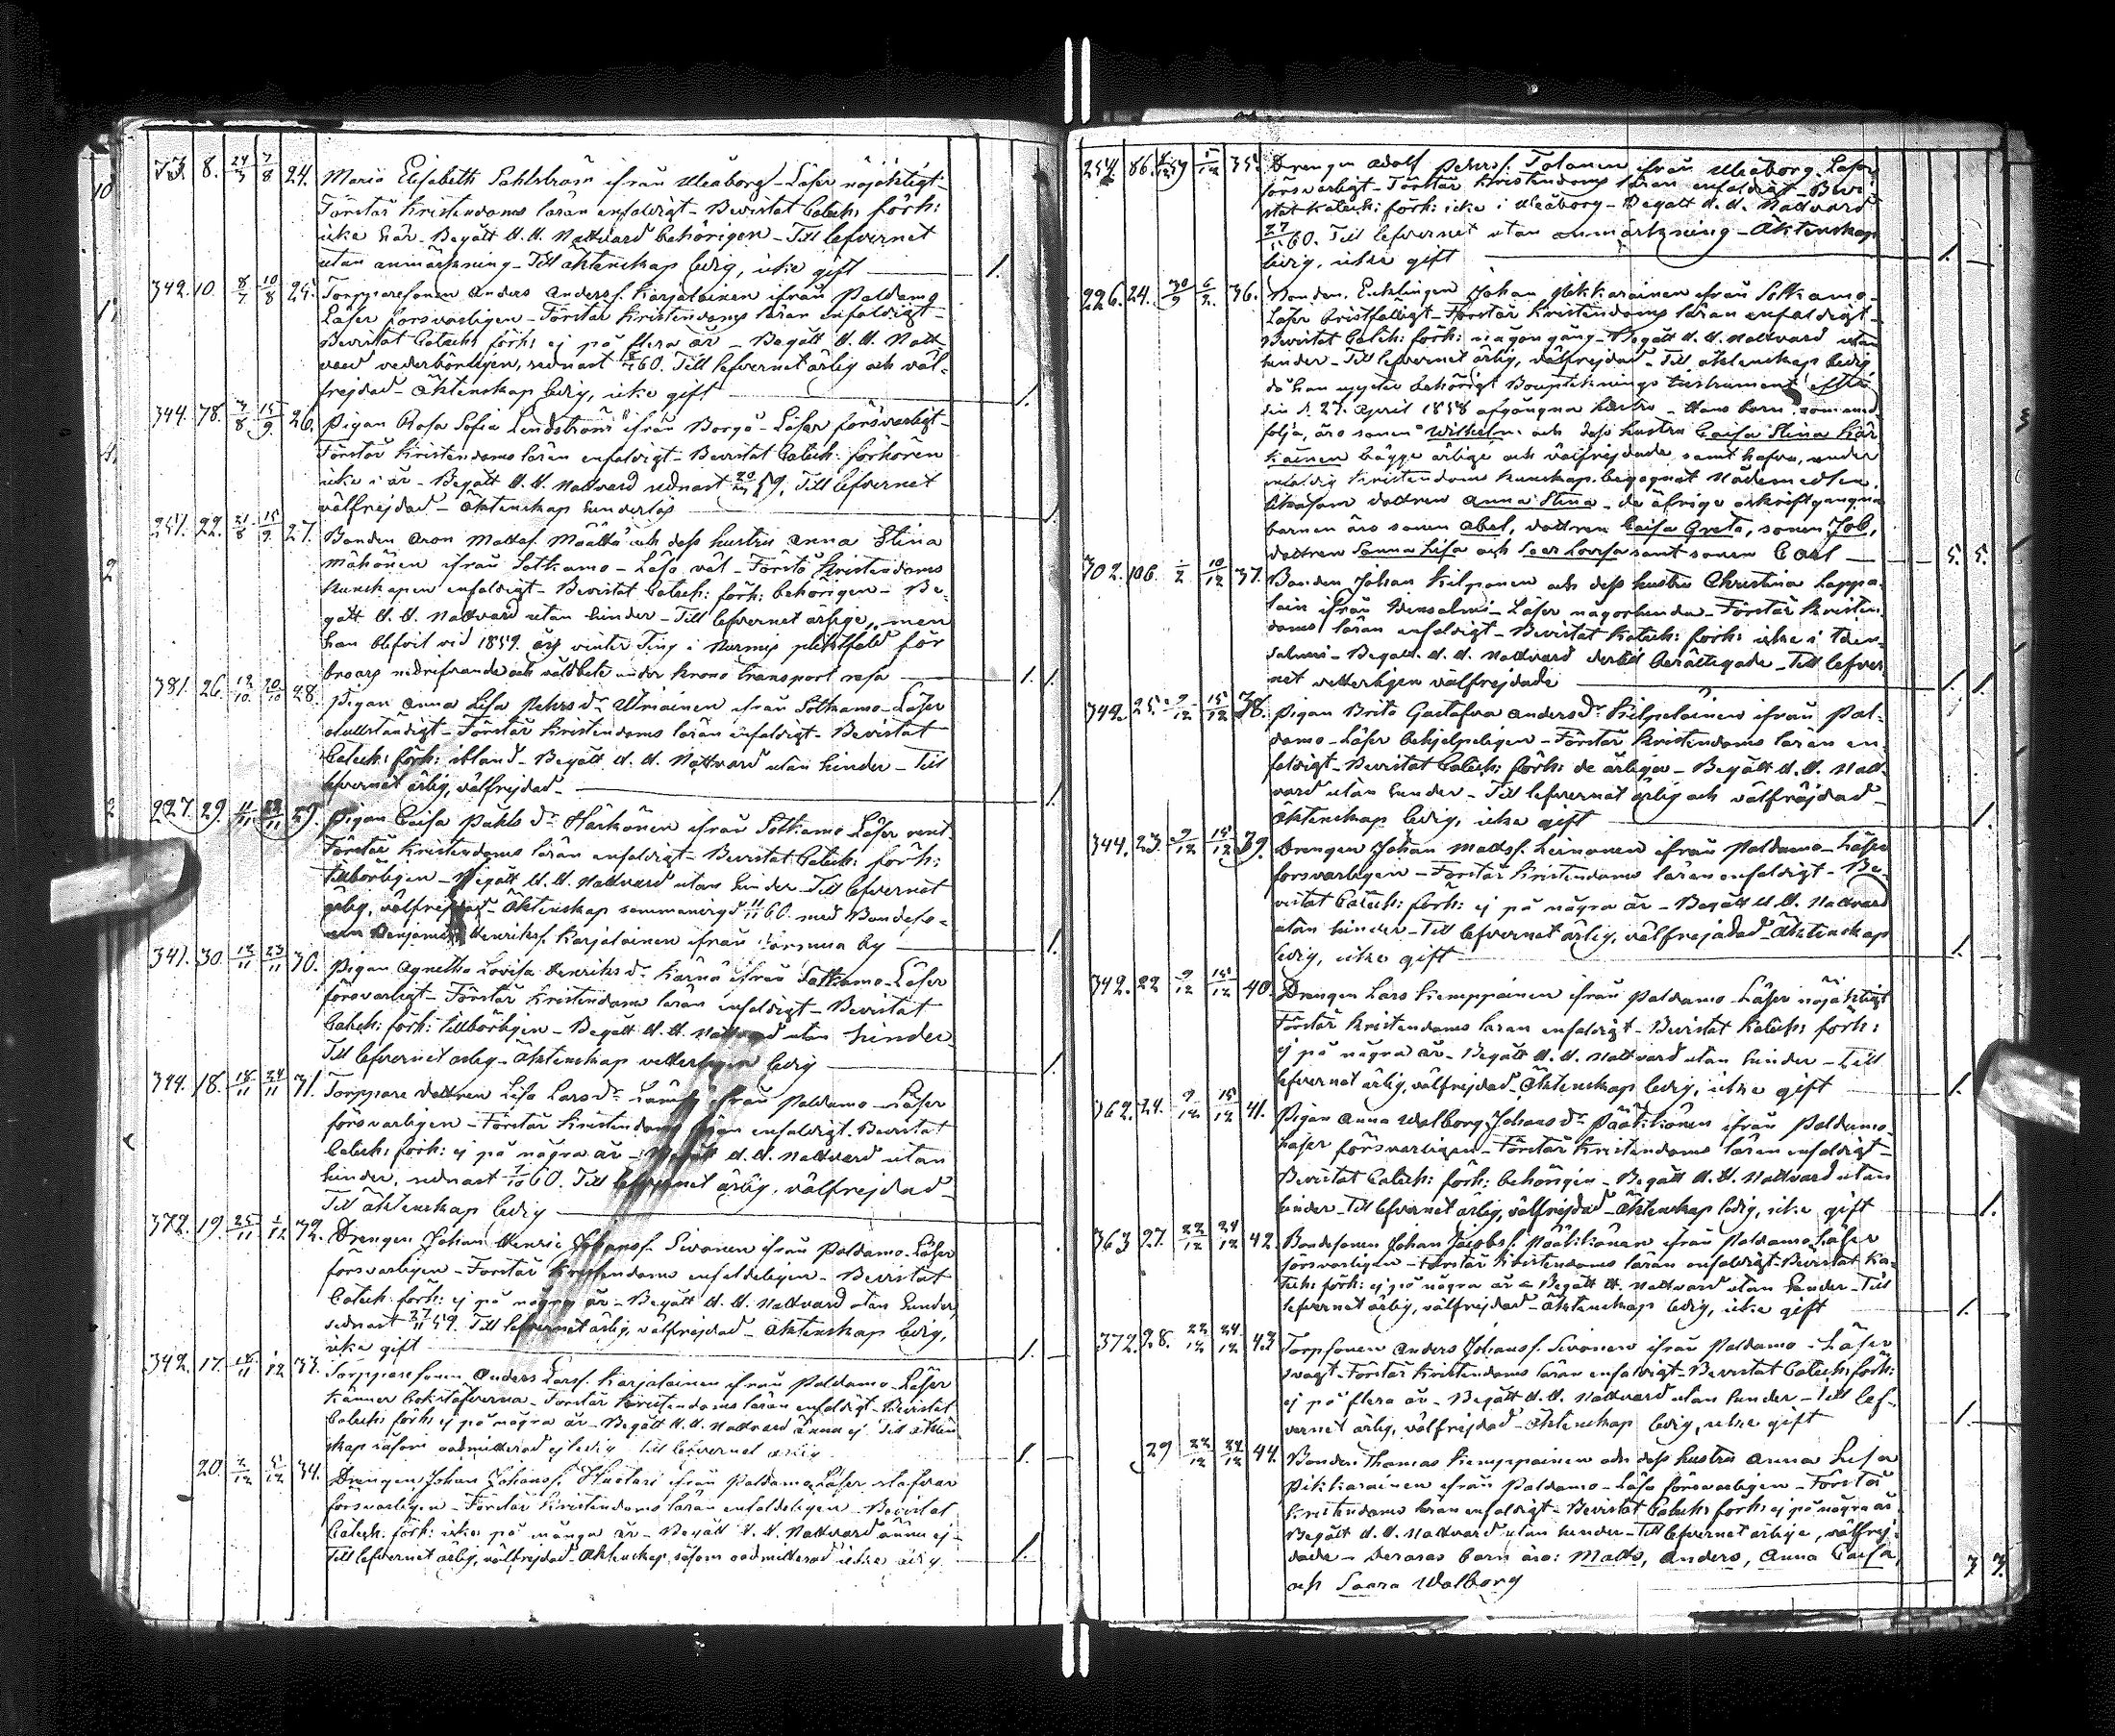 73. 8. 24/7 7/8 24. Maria Elisabeth Sahlström ifrån Uleåborg - Läser nöjaktigt -
Förstår Kristendoms läran enfaldigt - Bevistat Catech: förh:
icke här - Begått H. H. Nattvard behörigen - Till lefvernet
utan anmärkning - Till äktenskap ledig, icke gift 1.
342. 10. 8/7 10/8 25. Torpparesonen Anders Anderss. Karjalainen ifrån Paldamo
Läser försvarligen - Förstår Kristendoms läran enfaldigt -
Bevistat Catech: förh: ej på flera år - Begått H. H. Natt-
vard vederbörligen, sednast 60. Till lefvernet ärlig och väl-
frejdad - Äktenskap ledig, icke gift 1.
344. 78. 7/8 15/9 26. Pigan Rosa Sofia Lindström ifrån Borgå - Läser försvarligt -
Förstår Kristendoms läran enfaldigt - Bevistat Catech: förhören
icke i år - Begått H. H. Nattvard sednast 59. Till lefvernet
välfrejdad - Äktenskap hinderlös
22. 21/8 15/9 27. Bonden Aron Mattss. Määttä och dess hustru Anna Stina
Mähönen ifrån Sotkamo - Läsa väl - Förstå Kristendoms
kunskapen enfaldigt - Bevistat Catech: förh: behörigen - Be-
gått H. H. Nattvard utan hinder - Till lefvernet ärlige, men
han blefvit vid 1859 års vinter Ting i Nurmis pliktfäld för
broars nedrefvande och våldbete under krono transport resa 1. 1.
381. 26. 12/10 20/10 28. Pigan Anna Lisa Pehrs dr ifrån Sotkamo - Läser
ofullständigt - Förstår Kristendoms läran enfaldigt - Bevistat
Catech: förh: ibland - Begått H. H. Nattvard utan hinder - Till
lefvernet ärlig, välfrejdad - 1.
227. 29. 11/11 22/11 29. Pigan Caisa Påhls dr Härkönen ifrån Sotkamo Läser rent
Förstår Kristendoms läran enfaldigt - Bevistat Catech: förh:
tillbörligen - Begått H. H. Nattvard utan hinder - Till lefvernet
ärlig, välfrejdad - Äktenskap sammanvigd 60 med Bondeso-
nen Benjamin Henrikss. Karjalainen ifrån by 1.
341. 30. 12/11 23/11 30. Pigan Agnetha Lovisa Henriks dr Kärnä ifrån Sotkamo - Läser
försvarligt - Förstår Kristendoms läran enfaldigt - Bevistat
Catech: förh: tillbörligen - Begått H. H. Nattvard utan hinder
Till lefvernet ärlig - Äktenskap vetterligen ledig 1.
344. 18. 18/11 24/11 31. Torppare dottren Lisa Lars dr ifrån Paldamo - Läser
försvarligen - Förstår Kristendoms läran enfaldigt. Bevistat
Catech: förh: ej på några år - Begått H. H. Nattvard utan
hinder, sednast 7/10 60. Till lefvernet ärlig, välfrejdad -
Till äktenskap ledig
372. 19. 25/11 1/12 32. Drengen Johan Henric Johanss. Sivonen ifrån Paldamo - Läser
försvarligen - Förstår Kristendoms enfaldeligen - Bevistat
Catech: förh: ej på några år - Begått H. H. Nattvard utan hinder,
sednast 27/11 59. Till lefvernet ärlig, välfrejdad - Äktenskap ledig,
icke gift 1.
342. 17. 18/11 1/12 33. Torpparesonen Anders Larss. Karjalainen ifrån Paldamo - Läser
känner bokstäfverna - Förstår Kristendoms läran enfaldigt - Bevistat
Catech: förh: ej på några år - Begått H. H. Nattvard ännu ej Till äkten-
skap såsom oadmitterad ej ledig Till lefvernet ärlig 1.
20. 2/12 5/12 34. Drengen Johan Johanss. Huotari ifrån Paldamo Läser stafvar
försvarligen - Förstår Kristendoms läran enfaldeligen - Bevistat
Catech: förh: icke på många år - Begått H. H. Nattvard ännu ej -
Till lefvernet ärlig, välfrejdad - Äktenskap, såsom oadmitterad icke ledig 1.
254. 86. 35. Drengen Adolf Pehrss. Tolonen ifrån Uleåborg Läser
försvarligt - Förstår Kristendoms läran enfaldigt - Bevi-
stat Katech: förh: icke i Uleåborg - Begått H. H. Nattvard
60. Till lefvernet utan anmärkning - Äktenskap
ledig, icke gift 1.
226. 24. 30/9 36. Bonden, Enklingen Johan ifrån Sotkamo -
Läser bristfälligt - Förstår Kristendoms läran enfaldigt -
Bevistat Catech: förh: någon gång - Begått H. H. Nattvard utan
hinder - Till lefvernet ärlig, välfrejdad - Till äktenskap ledig
då han uppter behörigt Boupteknings instrument efter
sin d. 27. April 1858 afgångna hustru - Hans barn, som med-
följa, äro sonen Wilhelm och dess hustru Caisa Stina Kär-
käinen bägge ärlige och välfrejdade, samt hafva, under
enfaldig Kristendoms kunskap, begagnat Nådemedlen,
likasom dottren Anna Stina - de öfriga oskriftgångna
barnen äro sonen Abel, dottren Caisa Greta, sonen Job,
dottren Sanna Lisa och Lovisa samt sonen Carl 5. 5.
302. 106. 10/12 37. Bonden Johan Kilponen och dess hustru Christina Lappa-
lain ifrån Idensalmi - Läser någorlunda - Förstår Kristen-
doms läran enfaldigt - Bevistat Katech: förh: icke i Iden-
salmi - Begått H. H. Nattvard dertill berättigade - Till lefver-
net vetterligen välfrejdade 1. 1.
342. 25. 9/12 15/12 38. Pigan Brita Gustafva Anders dr Kilpeläinen ifrån Pal-
damo - Läser behjelpeligen - Förstår Kristendoms läran en-
faldigt - Bevistat Catech: förh: de årliga - Begått H. H. Natt-
vard utan hinder - Till lefvernet ärlig och välfräjdad -
Äktenskap ledig, icke gift 1.
344. 23. 9/12 15/12 39. Drengen Johan Mattss. Leinonen ifrån Paldamo - Läser
försvarligen - Förstår Kristendoms läran enfaldigt - Be-
vistat Catech: förh: ej på några år - Begått H. H. Nattvard
utan hinder - Till lefvernet ärlig, välfrejdad - Äktenskap
ledig, icke gift 1.
342. 22 9/12 15/12 40. Drengen Lars Kemppainen ifrån Paldamo - Läser nöjaktigt
Förstår Kristendoms läran enfaldigt - Bevistat Katech: förh:
ej på några år - Begått H. H. Nattvard utan hinder - Till
lefvernet ärlig, välfrejdad - Äktenskap ledig, icke gift 1.
362. 24. 9/12 15/12 41. Pigan Anna Walborg Johans dr Pääkkönen ifrån Paldamo -
Läser försvarligen - Förstår Kristendoms läran enfaldigt -
Bevistat Catech: förh: behörigen - Begått H. H. Nattvard utan
hinder - Till lefvernet ärlig, välfrejdad - Äktenskap ledig, icke gift 1.
363 27. 22/12 24/12 42. Bondesonen Johan Jacobss. Pääkkönen ifrån Paldamo Läser
försvarligen - Förstår Kristendoms läran enfaldigt - Bevistat Ka-
tech: förh: ej på några år - Begått H. Nattvard utan hinder - Till
lefvernet ärlig, välfrejdad - Äktenskap ledig, icke gift 1.
372. 28. 22/12 24/12 43. Torpsonen Anders Johanss. Sivonen ifrån Paldamo - Läser
svagt - Förstår Kristendoms läran enfaldigt - Bevistat Catech: förh:
ej på flera år - Begått H. H. Nattvard utan hinder - Till lef-
vernet ärlig, välfrejdad - Äktenskap ledig, icke gift 1.
29 22/12 24/12 44. Bonden Thomas Kemppainen och dess hustru Anna Lisa
Pikkarainen ifrån Paldamo - Läsa försvarligen - Förstå
Kristendoms läran enfaldigt - Bevistat Catech: förh: ej på några år.
Begått H. H. Nattvard utan hinder - Till lefvernet ärlige, välfrej-
dade - Deras barn äro: Matts, Anders, Anna Caisa,
och Saara Walborg 3 3.